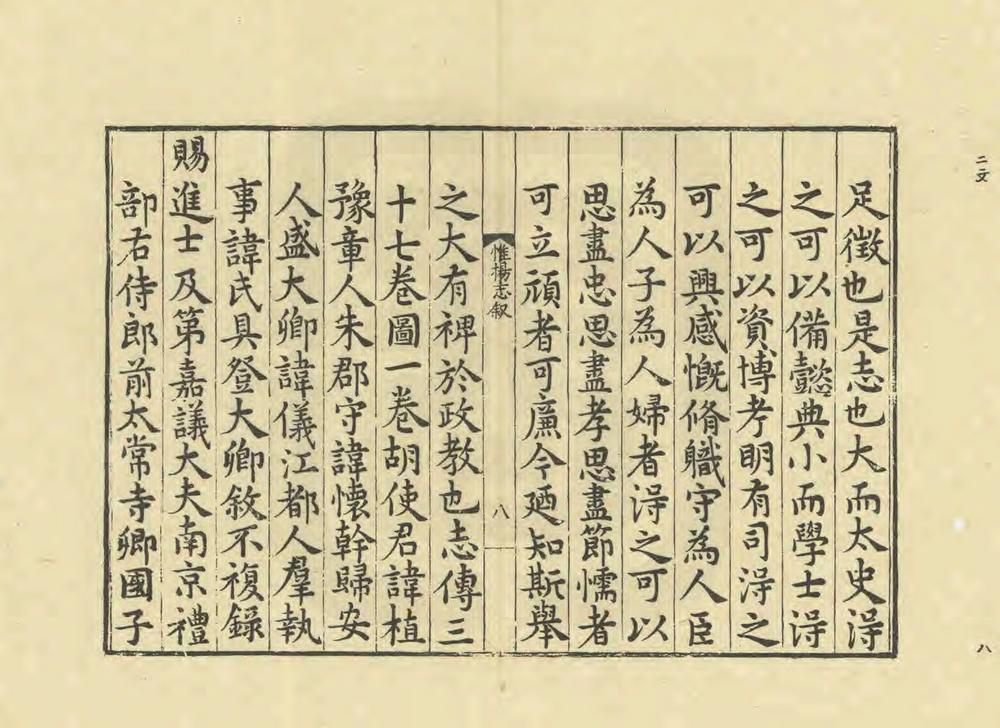 足徵也是志也大而太史淂
之可以備懿典小而學士淂
之可以資博考明有司淂之
可以興感慨脩職守為人臣
為人子為人婦者淂之可以
思盡忠思盡孝思盡節懦者
可立頑者可廉今廼知斯舉
惟揚志叙
八
之大有裨於政教也志傳三
十七卷圖一卷胡使君諱植
豫章人朱郡守諱懷幹歸安
人盛大卿諱儀江都人羣執
事諱氏具登大卿敘不複錄
賜進士及第嘉議大夫南京禮
部右侍郎前太常寺卿國子
二文
八